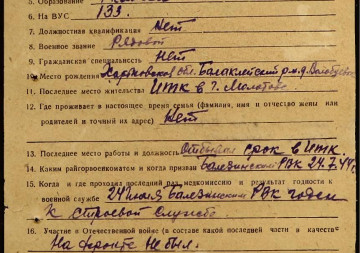 5. Образование
6. На ВУС 133.
7. Должностная квалификация Нет
8. Военное звание Рядовой
9. Гражданская специальность Нет
10. Место рождения Харьковская обл. Балаклейский р-н д.
11. Последнее место жительства ИТК в г. Молотове
12. Где проживает в настоящее время семья (фамилия, имя и отчество жены или
родителей и точный их адрес) Нет
13. Последнее место работы и должность Отбывал срок в ИТК.
14. Каким райгорвоенкоматом и когда призван Балезинский РВК 24.7.44 г.
15. Когда и где проходил последний раз медкомиссию и результат годности к
военной службе 24 июля Балезинский РВК годен
К строевой службе
16. Участие в Отечественной войне (в составе какой последней части и качестве
На фронте не был.